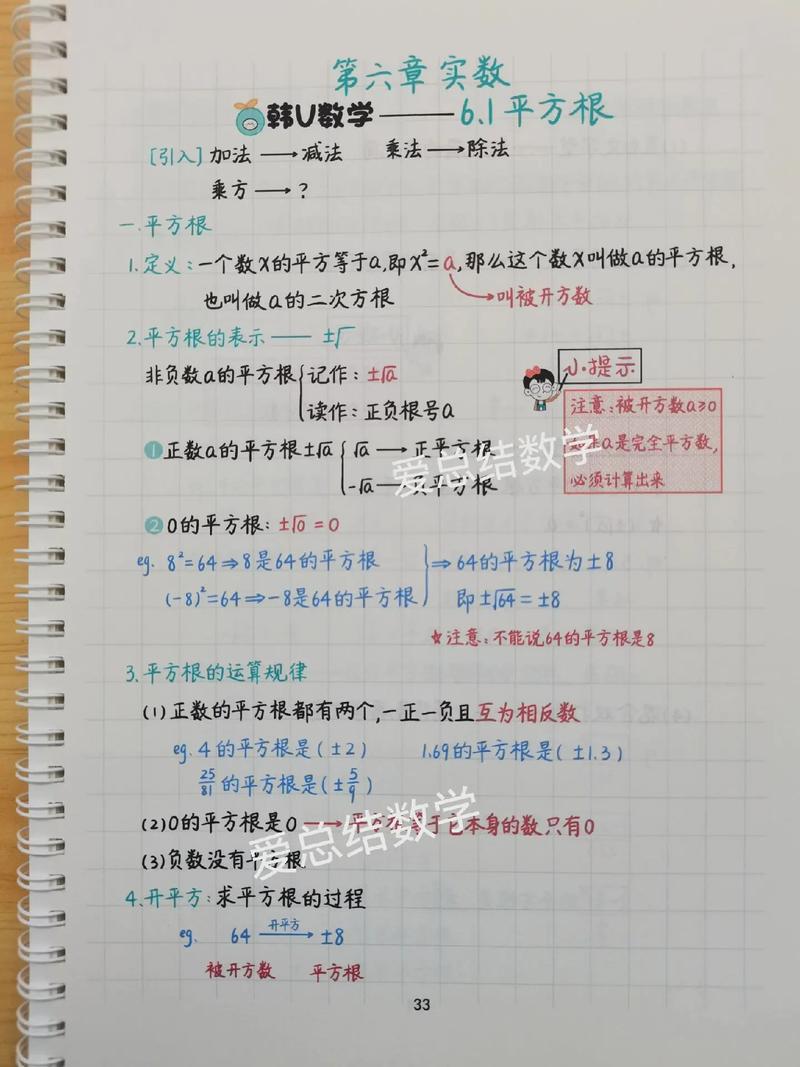 第六章 实数
韩U数学——6.1平方根
[引入] 加法→减法 乘法→除法
乘方→?
一.平方根
1.定义:一个数x的平方等于a,即x²=a,那么这个数x叫做a的平方根,
也叫做a的二次方根 →叫被开方数
2.平方根的表示——±√
非负数a的平方根{记作:±√a
读作:正负根号a
小提示
注意:被开方数a≥0
a是完全平方数,
必须计算出来
①正数a的平方根±√a{√a→正平方根
-√a→负平方根
爱总结数学
②0的平方根:±√0=0
eg. 8²=64⇒8是64的平方根
(-8)²=64⇒-8是64的平方根}⇒64的平方根为±8
即±√64=±8
★注意:不能说64的平方根是8
3.平方根的运算规律
(1)正数的平方根都有两个,一正一负且互为相反数
eg.4的平方根是(±2) 1.69的平方根是(±1.3)
25/81的平方根是(±5/9)
(2)0的平方根是0→平方根等于它本身的数只有0
爱总结数学
(3)负数没有平方根
4.开平方:求平方根的过程
eg. 64 开平方→ ±8
被开方数 平方根
33